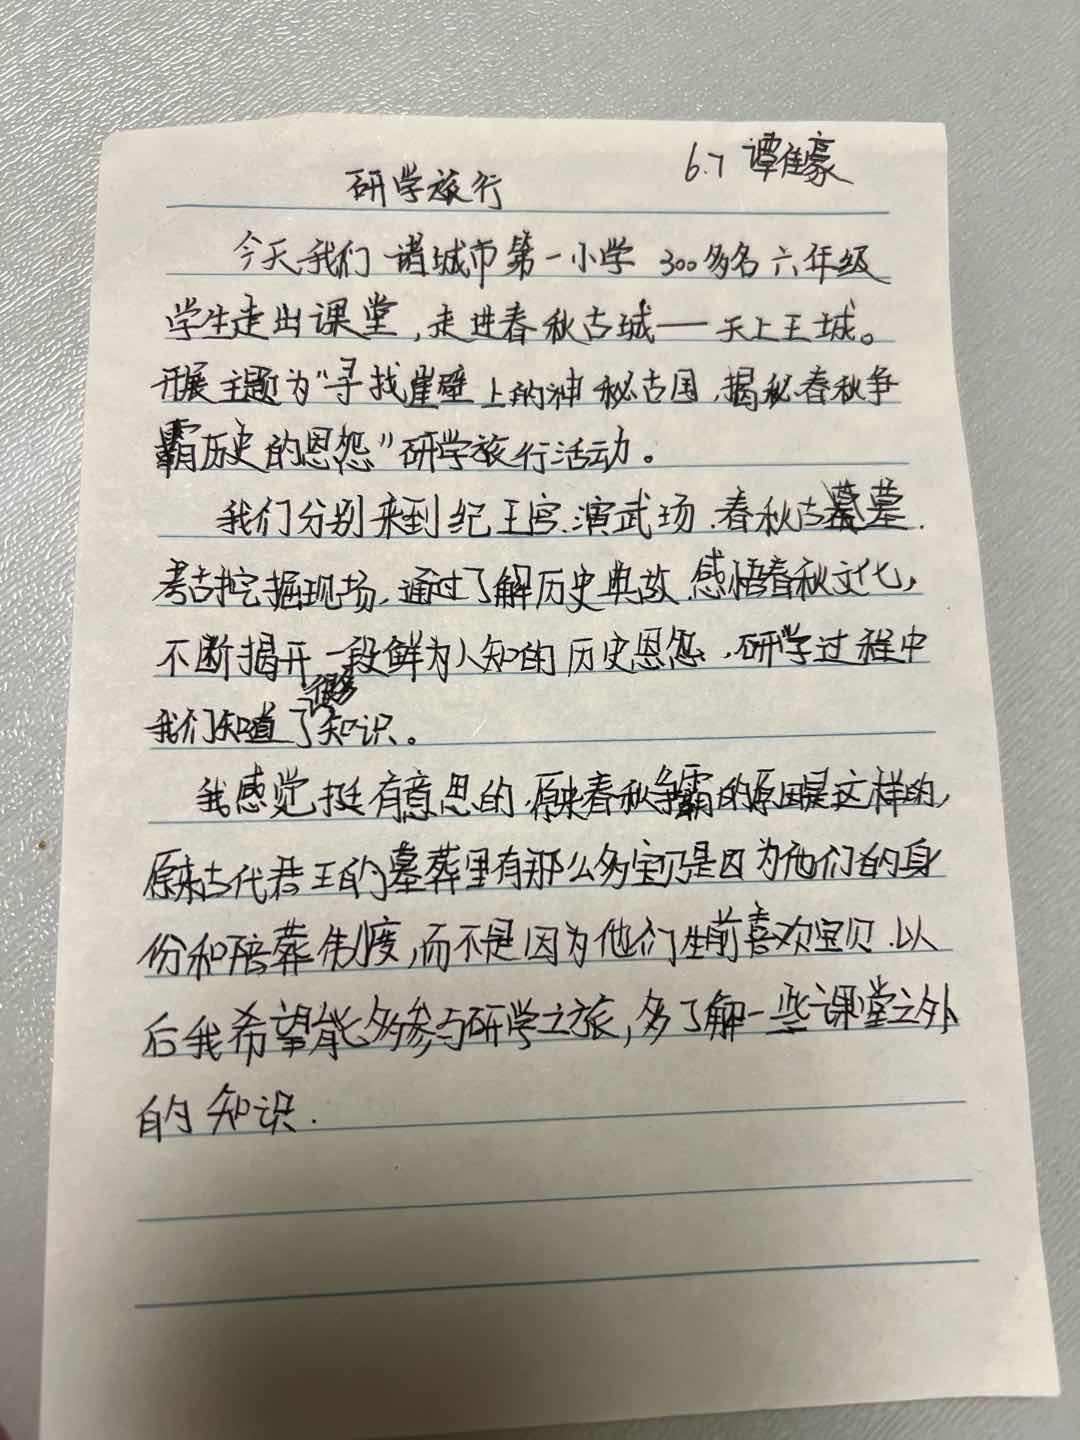 6.7 谭佳豪
研学旅行
今天我们诸城市第一小学 300多名六年级
学生走出课堂,走进春秋古城——天上王城。
开展主题为“寻找崖壁上的神秘古国,揭秘春秋争
霸历史的恩怨”研学旅行活动。
我们分别来到纪王宫、演武场、春秋古墓、
考古挖掘现场,通过了解历史典故、感悟春秋文化,
不断揭开一段鲜为人知的历史恩怨,研学过程中
我们知道了很多知识。
我感觉挺有意思的,原来春秋争霸的原因是这样的,
原来古代君王的墓葬里有那么多宝贝是因为他们的身
份和陪葬制度,而不是因为他们生前喜欢宝贝.以
后我希望能多参与研学之旅,多了解一些课堂之外
的知识.